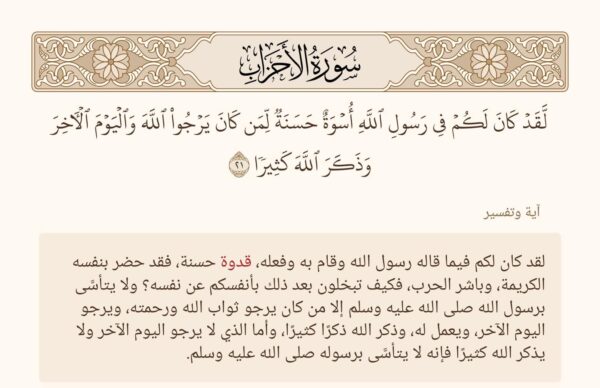 سُورَةُ الأَحْزَابِ
لَّقَدْ كَانَ لَكُمْ فِي رَسُولِ ٱللَّهِ أُسْوَةٌ حَسَنَةٌ لِّمَن كَانَ يَرْجُوا۟ ٱللَّهَ وَٱلْيَوْمَ ٱلْـَٔاخِرَ
وَذَكَرَ ٱللَّهَ كَثِيرًا ٢١
آية وتفسير
لقد كان لكم فيما قاله رسول الله وقام به وفعله، قدوة حسنة، فقد حضر بنفسه
الكريمة، وباشر الحرب، فكيف تبخلون بعد ذلك بأنفسكم عن نفسه؟ ولا يتأسَّى
برسول الله صلى الله عليه وسلم إلا من كان يرجو ثواب الله ورحمته، ويرجو
اليوم الآخر، ويعمل له، وذكر الله ذكرًا كثيرًا، وأما الذي لا يرجو اليوم الآخر ولا
يذكر الله كثيرًا فإنه لا يتأسَّى برسوله صلى الله عليه وسلم.